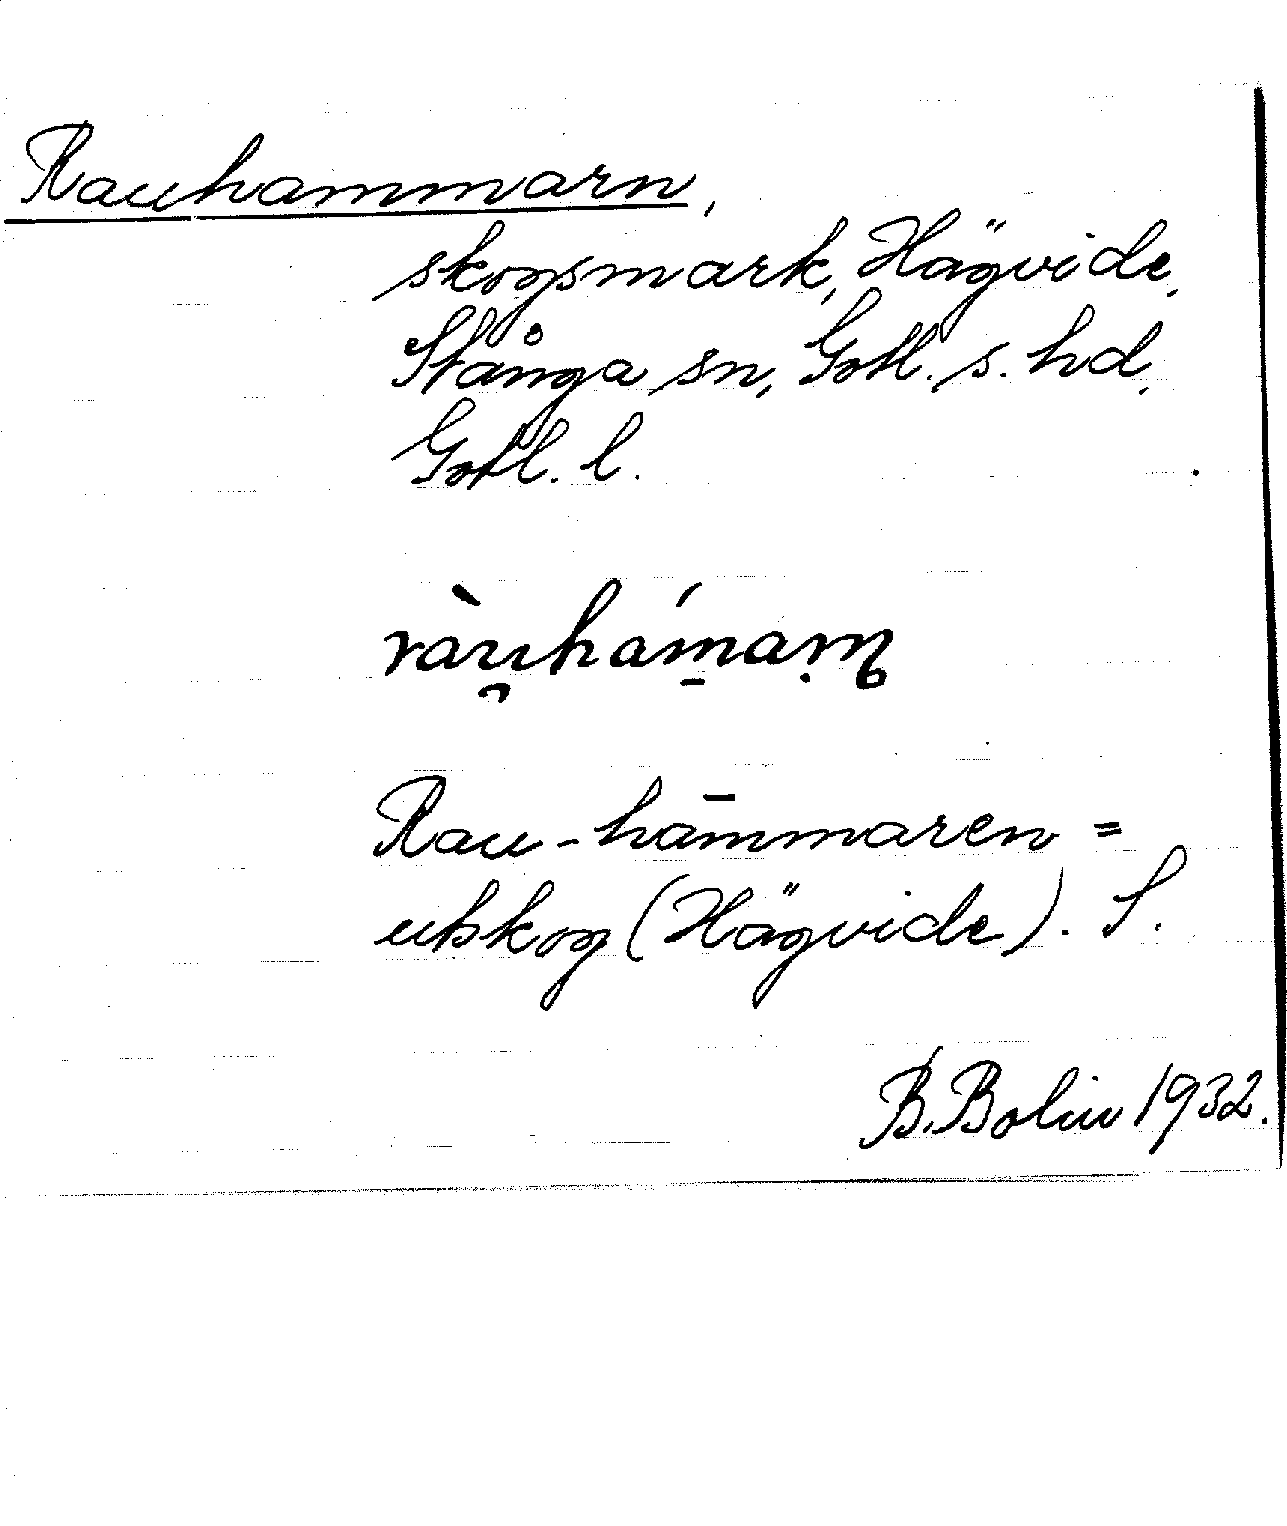 Rauhammarn,
skogsmark, Hägvide,
Stånga sn, Gotl. s. hd,
Gotl. l.
Rau-hām̄maren =
utskog (Hägvide). S.
B. Bolin 1932.